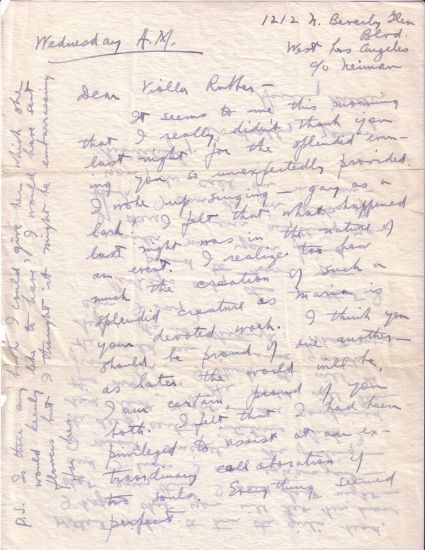 1212 N. Beverly Glen
Blvd.
West Los Angeles
c/o Neiman
Wednesday A.M.
Dear Viola Rother –
It seems to me this morning
that I really didn't thank you
last night for the splendid even-
ing you so unexpectedly provided.
I woke up singing – gay as a
lark! I felt that what happened
last night was in the nature of
an event. I realize too how
much the creation of such a
splendid creature as Maria is
your devoted work. I think you
should be proud of one another
as later the world will be,
I am certain, proud of you
both. I felt that I had been
privileged to assist at an ex-
traordinary collaboration of
two souls. Everything seemed
perfect
P.S. Is there any book I could give her which she
would really like to have? I would have sent
flowers but I thought it might be embarrassing
for her.